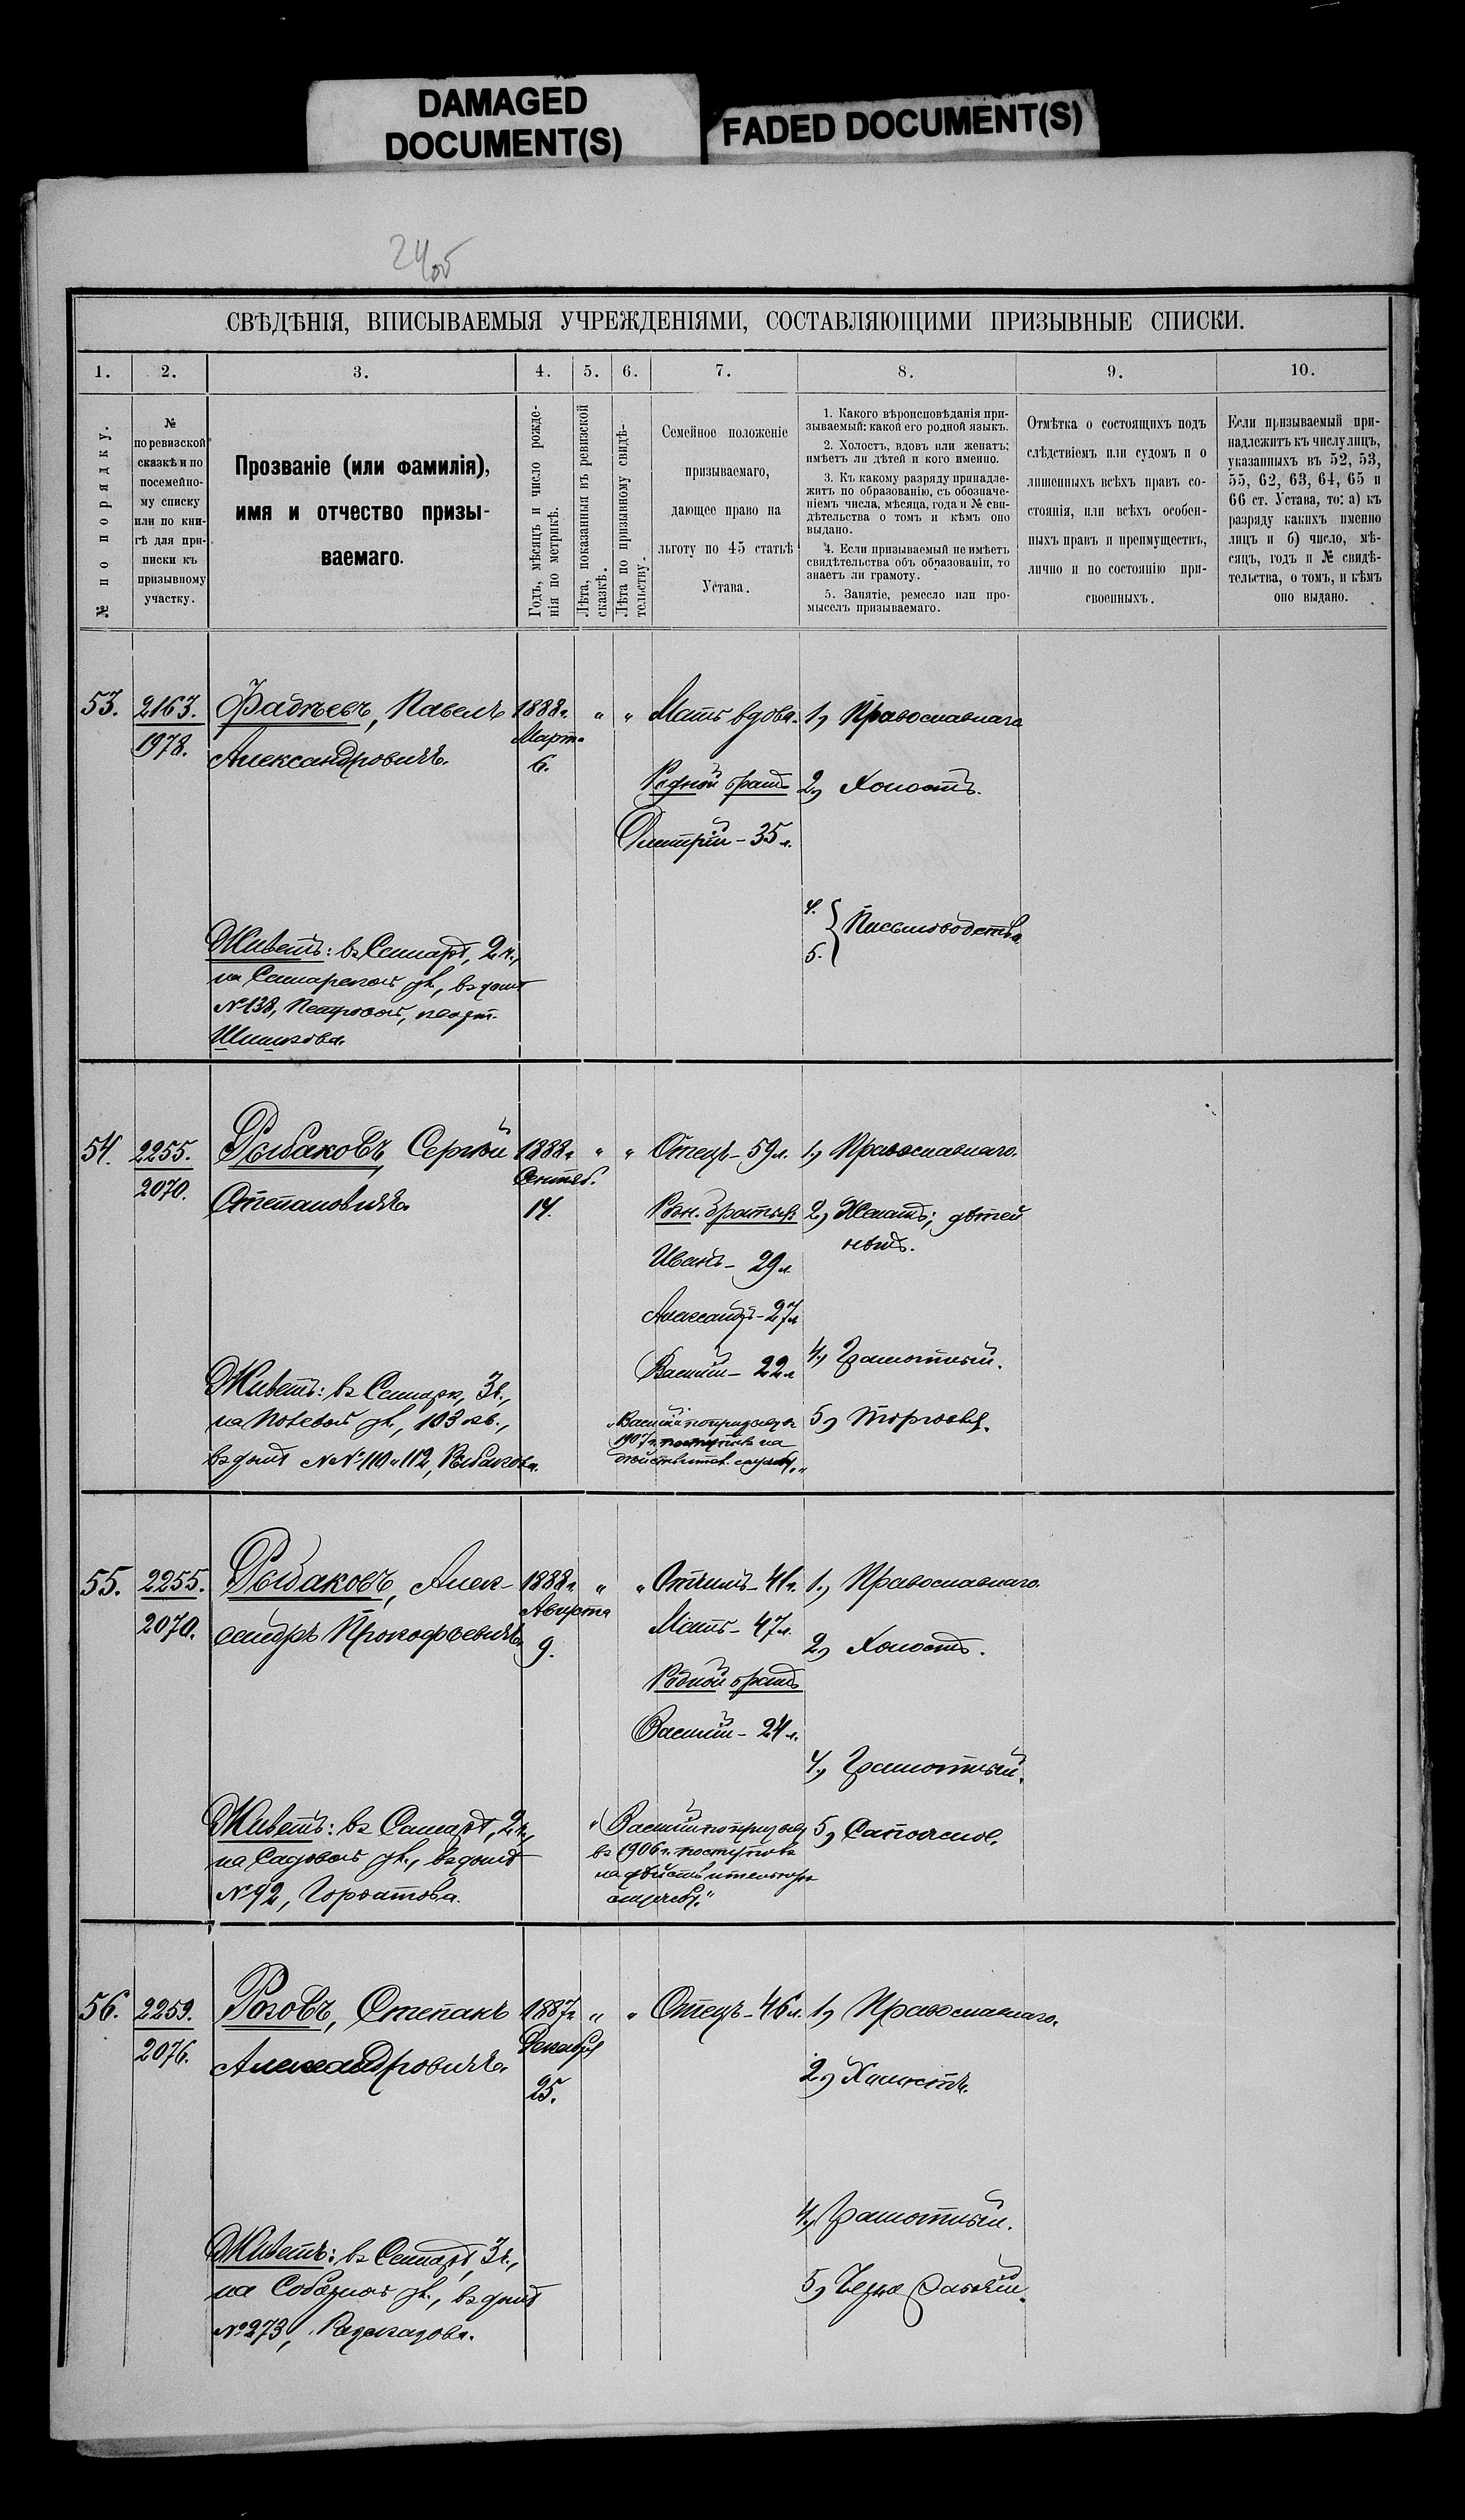 DAMAGED
DOCUMENT(S)
FADED DOCUMENT(S)
24 об
СВѢДѢНІЯ, ВПИСЫВАЕМЫЯ УЧРЕЖДЕНІЯМИ, СОСТАВЛЯЮЩИМИ ПРИЗЫВНЫЕ СПИСКИ.
1.
2.
3.
4.
5.
6.
7.
8.
9.
10.
№ по порядку.
№
по ревизской
сказкѣ и по
посемейно-
му списку
или по кни-
гѣ для при-
писки къ
призывному
участку.
Прозваніе (или фамилія),
имя и отчество призы-
ваемаго.
Годъ, мѣсяцъ и число рожде-
нія по метрикѣ.
Лѣта, показанныя въ ревизской
сказкѣ.
Лѣта по призывному свидѣ-
тельству.
Семейное положеніе
призываемаго,
дающее право на
льготу по 45 статьѣ
Устава.
1. Какого вѣроисповѣданія при-
зываемый: какой его родной языкъ.
2. Холостъ, вдовъ или женатъ;
имѣетъ ли дѣтей и кого именно.
3. Къ какому разряду принадле-
житъ по образованію, съ обозначе-
ніемъ числа, мѣсяца, года и № сви-
дѣтельства о томъ и кѣмъ оно
выдано.
4. Если призываемый не имѣетъ
свидѣтельства объ образованіи, то
знаетъ ли грамоту.
5. Занятіе, ремесло или про-
мыселъ призываемаго.
Отмѣтка о состоящихъ подъ
слѣдствіемъ или судомъ и о
лишенныхъ всѣхъ правъ со-
стоянія, или всѣхъ особен-
ныхъ правъ и преимуществъ,
лично и по состоянію при-
своенныхъ.
Если призываемый при-
надлежитъ къ числу лицъ,
указанныхъ въ 52, 53,
55, 62, 63, 64, 65 и
66 ст. Устава, то: а) къ
разряду какихъ именно
лицъ и б) число, мѣ-
сяцъ, годъ и № свидѣ-
тельства, о томъ, и кѣмъ
оно выдано.
53.
2163.
1978.
Фадѣевъ, Павелъ
Александровичъ.
Живетъ: въ Самарѣ, 2 ч.,
на Самарской ул., въ домѣ
№ 138, Петровой, кварт.
Шишкова.
1888 г.
Март.
6.
"
"
Мать вдова.
Родной братъ
Дмитрій - 35 л.
1, Православнаго
2, Холостъ.
4.
5.
Письмоводство.
54.
2255.
2070.
Рыбаковъ, Сергѣй
Степановичъ.
Живетъ: въ Самарѣ, 3 ч.,
на Полевой ул., 103 кв.,
въ домѣ №№ 110 и 112, Рыбакова.
1888 г.
Сентяб.
14.
"
"
Отецъ - 59 л.
Родн. братья
Иванъ - 29 л.
Александръ - 27 л
Василій - 22 л
"Василій по призыву
1907 г. поступилъ на
дѣйствител. службу"
1, Православнаго.
2, Женатъ; дѣтей
нѣтъ.
4, Грамотный.
5, Торговля.
55.
2255.
2070.
Рыбаковъ, Алек-
сандръ Прокофьевичъ
Живетъ: въ Самарѣ, 2 ч.,
на Садовой ул., въ домѣ
№ 92, Горбатова.
1888 г.
Августа
9.
"
"
Отчимъ - 41 г.
Мать - 47 л.
Родной братъ
Василій - 24 л.
"Василій по призыву
въ 1906 г. поступилъ
на дѣйствительную
службу."
1, Православнаго.
2, Холостъ.
4, Грамотный.
5, Сапожное.
56.
2259.
2076.
Роговъ, Степанъ
Александровичъ.
Живетъ: въ Самарѣ, 3 ч.,
на Соборной ул., въ домѣ
№ 273,
1887 г.
Декабря
25.
"
"
Отецъ - 46 л.
1, Православнаго.
2, Холостъ.
4, Грамотный.
5, Чернорабочій.